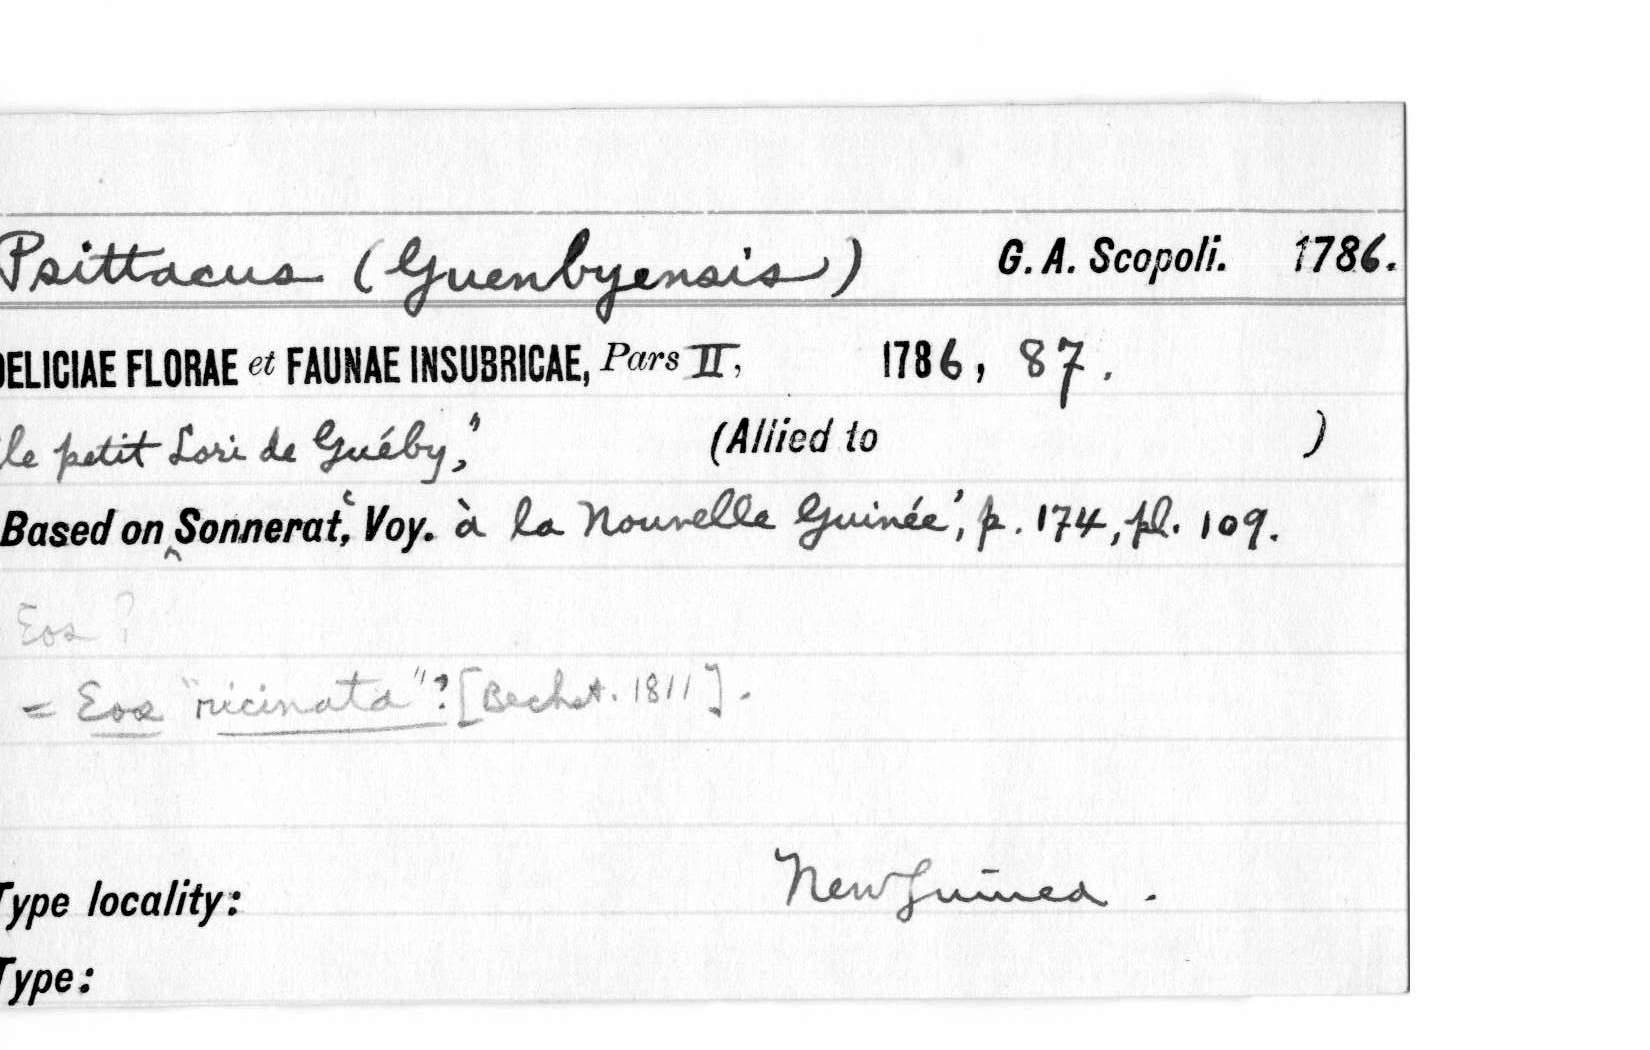 Psittacus (Guenbyensis) G. A. Scopoli. 1786.
DELICIAE FLORAE et FAUNAE INSUBRICAE, Pars II, 1786, 87.
'le petit Lori de Guéby,' (Allied to )
Based on Sonnerat, 'Voy. à la Nouvelle Guinée', p. 174, pl. 109.
Eos ?
= Eos "ricinata"? [Bechst. 1811].
Type locality: New Guinea.
Type: